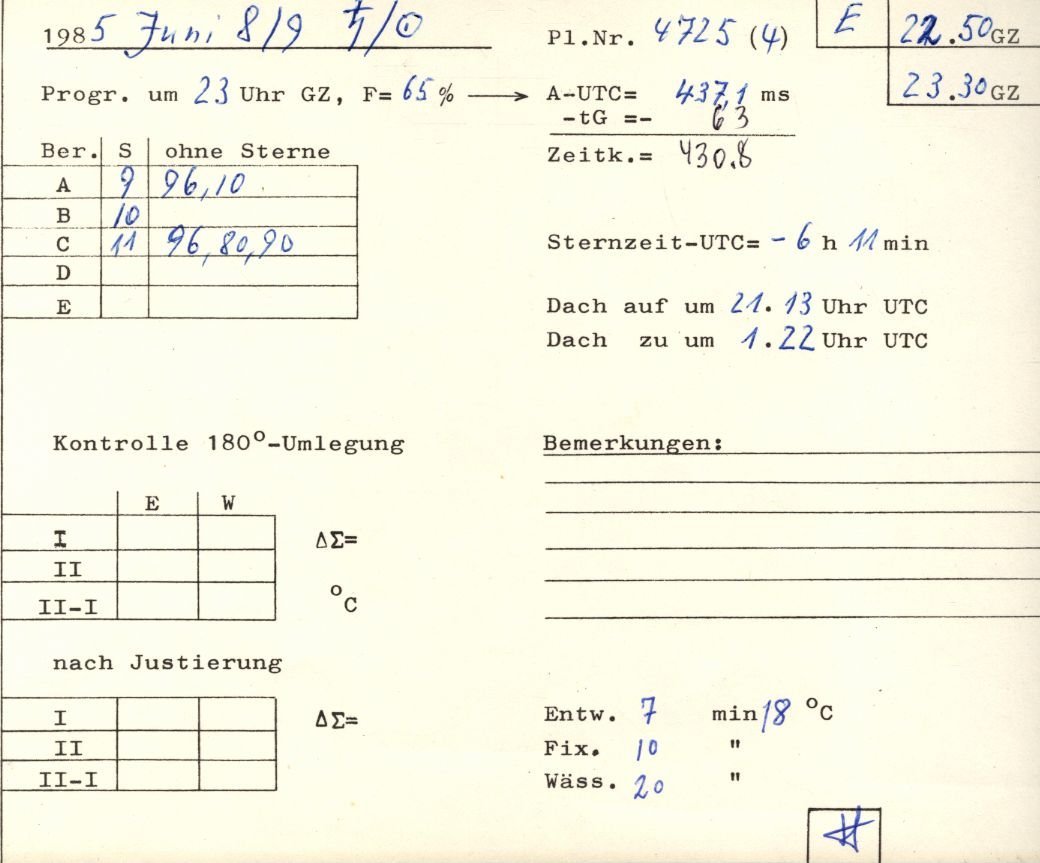 1985 Juni 8/9 ♄/☉ Pl.Nr. 4725 (4) E 22.50 GZ
23.30 GZ
Progr. um 23 Uhr GZ, F= 65 % → A-UTC= 437,1 ms
-tG =- 63
Zeitk.= 430.8
Ber. S ohne Sterne
A 9 96,10
B 10
C 11 96,80,90
D
E
Sternzeit-UTC= - 6 h 11 min
Dach auf um 21.13 Uhr UTC
Dach zu um 1.22 Uhr UTC
Kontrolle 180°-Umlegung
E W
I ΔΣ=
II
II-I °C
Bemerkungen:
nach Justierung
I ΔΣ=
II
II-I
Entw. 7 min 18 °C
Fix. 10 "
Wäss. 20 "